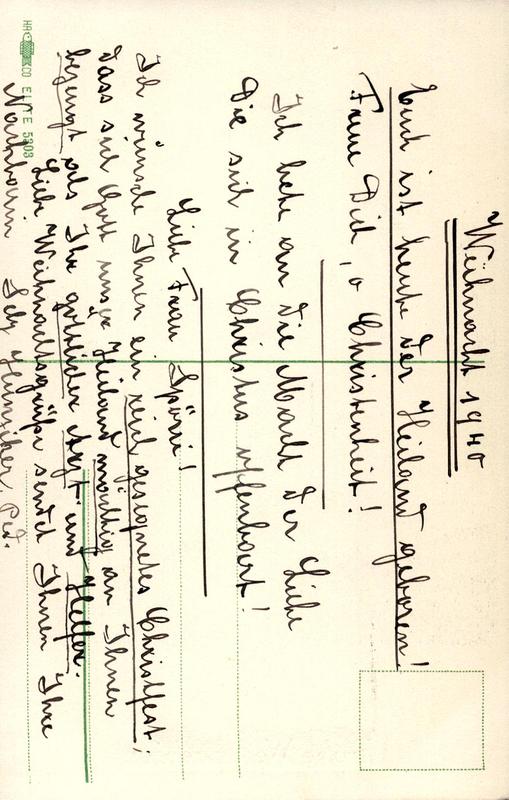 Weihnacht 1940
Euch ist heute der Heiland geboren!
Freue Dich, o Christenheit!
Ich bete an die Macht der Liebe
Die sich in Christus offenbart!
Liebe Frau Spörri!
Ich wünsche Ihnen ein reich gesegnetes Christfest;
dass sich Gott unser Heiland mächtig an Ihnen
bezeugt als Ihr göttlicher Arzt und Helfer.
Liebe Weihnachtsgrüsse sendet Ihnen Ihre
Nachbarin
HACO ELITE 5303